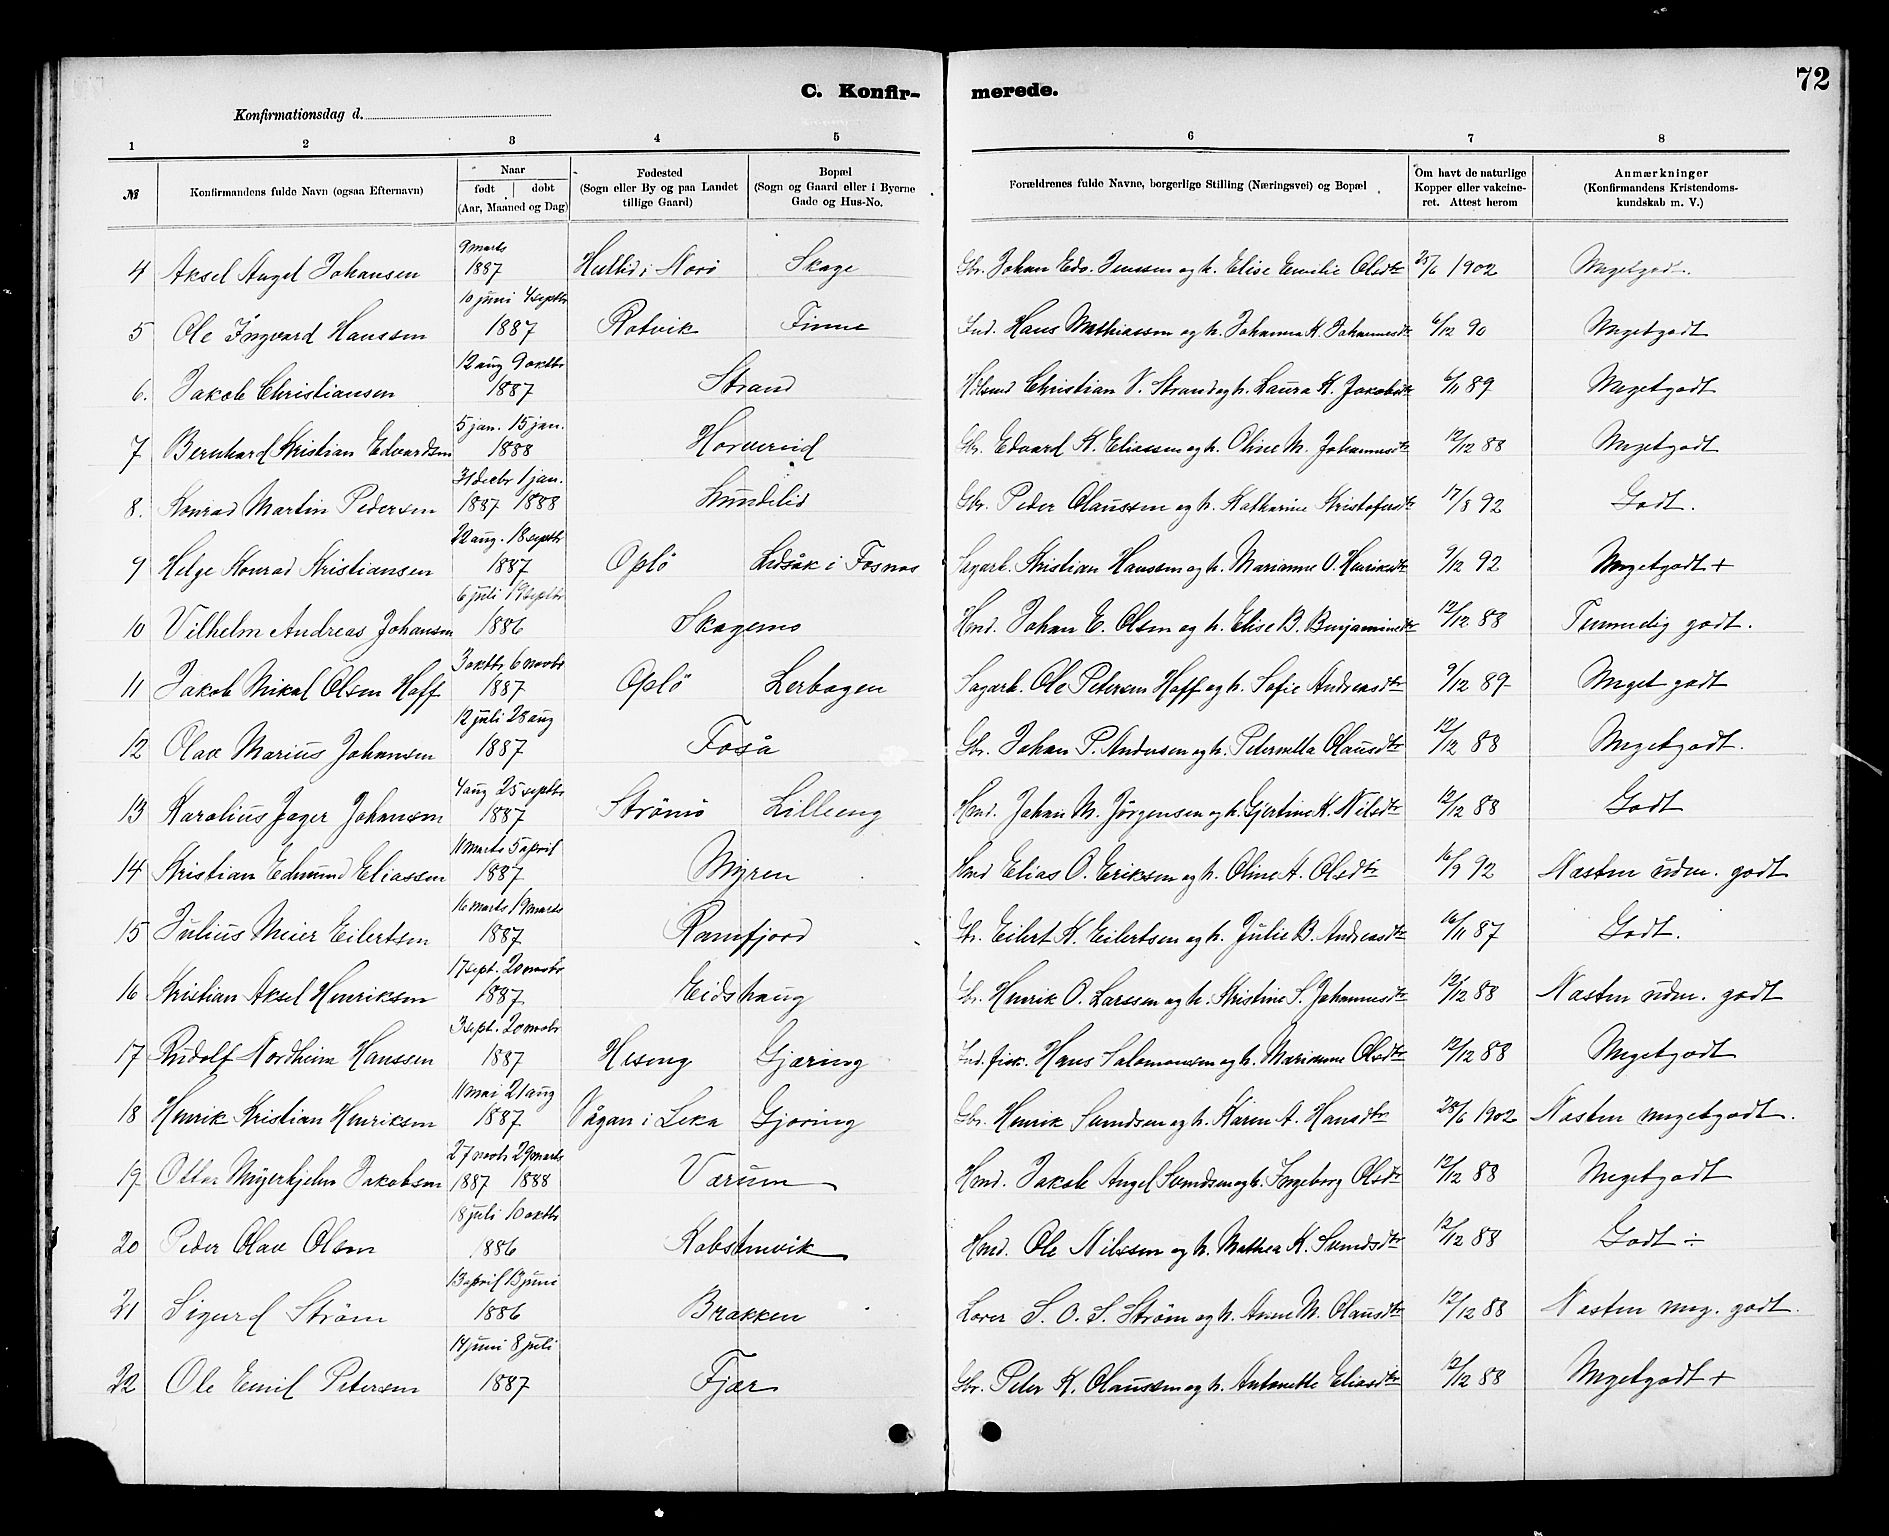 C. Konfir-
merede.
72
Konfirmationsdag d.
1 2 3 4 5 6 7 8
№ Konfirmandens fulde Navn (ogsaa Efternavn) Naar født døbt (Aar, Maaned og Dag) Fødested (Sogn eller By og paa Landet tillige Gaard) Bopæl (Sogn og Gaard eller i Byerne Gade og Hus-No. Forældrenes fulde Navne, borgerlige Stilling (Næringsvei) og Bopæl Om havt de naturlige Kopper eller vakcineret. Attest herom Anmærkninger (Konfirmandens Kristendomskundskab m. V.)
4 Aksel Angel Johansen 9 marts 1887 i Nærö Skage Gbr. Johan Edv. Jenssen og h. Elise Emilie Olsdtr 25/6 1902 Megetgodt.
5 Ole Ingvard Hanssen 10 juni 4 septbr 1887 Rotvik Finne Ind. Hans Mathiassen og h. Johanna K. Johannesdtr 6/12 90 Megetgodt
6. Jakob Christiansen 12 aug 9 oktbr 1887 Strand Christian V. Strand og h. Laura K. Jakobsdtr 6/11 89 Megetgodt
7 Bernhard Kristian Edvardsen 5 jan. 15 jan. 1888 Horvereid Gbr. Edvard K. Eliassen og h. Oline M. Johannesdtr 12/12 88 Megetgodt
8. Konrad Martin Pedersen 31 decbr 1 jan. 1887 1888 Lundelid Gbr. Peder Olaussen og h. Katharine Kristofersdtr 17/8 92 Godt.
9 Helge Konrad Kristiansen 22 aug. 18 septbr 1887 Oplö i Fosnæs Sagarb. Kristian Hanssen og h. Marianne O. Henriksdtr 9/12 92 Megetgodt +
10 Vilhelm Andreas Johansen 6 juli 19 septbr 1886 Skagemo Hmd. Johan E. Olsen og h. Elise B. Benjaminsdtr 12/12 88 Temmelig godt.
11 Jakob Mikal Olsen Hoff 3 oktbr 6 novbr 1887 Oplö Lerbagen Sagarb. Ole Petersen Hoff og h. Sofie Andreasdtr 9/12 89 Meget godt
12 Olav Marius Johansen 12 juli 28 aug 1887 Foså Gbr. Johan P. Andersen og h. Peternella Olausdtr 12/12 88 Megetgodt.
13 Karolius Jager Johansen 4 aug 25 septbr 1887 Strömö Lilleeng Hmd. Johan M. Jørgensen og h. Gjertine K. Nilsdtr 12/12 88 Godt
14 Kristian Edmund Eliassen 11 marts 5 april 1887 Myren Hmd Elias O. Eriksen og h. Oline A. Olsdtr 16/9 92 Næsten udm. godt
15 Julius Meier Eilertsen 16 marts 19 marts 1887 Ramfjord Gbr. Eilert K. Eilertsen og h. Julie B. Andreasdtr 16/11 87 Godt.
16 Kristian Aksel Henriksen 17 sept. 20 novbr 1887 Eidshaug Gbr. Henrik O. Larssen og h. Kristine S. Johannesdtr 12/12 88 Næsten udm. godt
17 Rudolf Nordheim Hanssen 3 sept. 20 novbr 1887 Heseng Gjæring Ind. fisk. Hans Salomonsen og h. Marianne Olsdtr 12/12 88 Megetgodt
18 Henrik Kristian Henriksen 11 mai 21 aug 1887 Vågan i Leka Gjæring Gbr. Henrik Svendsen og h. Karen A. Hansdtr 28/6 1902 Næsten megetgodt.
19. Otter Myerhjelm Jakobsen 27 novbr 29 marts 1887 1888 Værum Hmd. Jakob Angel Svendsen og h. Ingeborg Olsdtr 12/12 88 Megetgodt
20 Peder Olav Olsen 18 juli 10 oktbr 1886 Kobstenvik Hmd. Ole Nilssen og h. Mathea K. Svendsdtr 12/12 88 Godt ÷
21 Sigurd Strøm 13 april 13 juni 1886 Brækken S. O. S. Strøm og h. Anne M. Olausdtr 12/12 88 Næsten meg. godt.
22 Ole Emil Petersen 14 juni 8 juli 1887 Fjær Gbr. Peter K. Olaussen og h. Antonette Eliasdtr 12/12 88 Megetgodt +